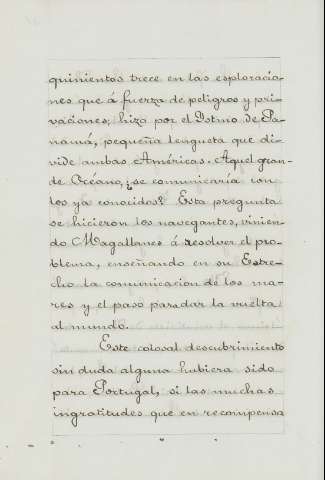 quinientos trece en las esploracio-
nes que á fuerza de peligros y pri-
vaciones, hizo por el Istmo de Pa-
namá, pequeña lengueta que di-
vide ambas Américas. Aquel gran-
de Océano, ¿se comunicaría con
los ya conocidos? Esta pregunta
se hicieron los navegantes, vinien-
do Magallanes á resolver el pro-
blema, enseñando en su Estre-
cho la comunicacion de los ma-
res y el paso para dar la vuelta
al mundo.
Este colosal descubrimiento
sin duda alguna hubiera sido
para Portugal, si las muchas
ingratitudes que en recompensa